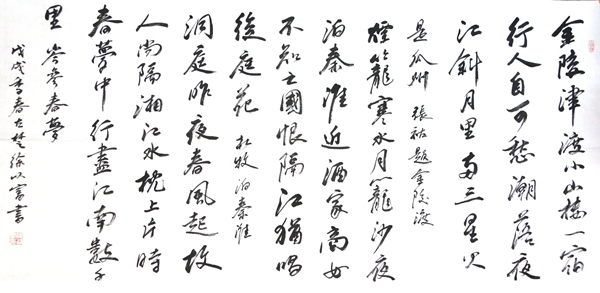 金陵津渡小山樓一宿
行人自可愁潮落夜
江斜月里兩三星火
是瓜州 張祜題金陵渡
煙籠寒水月籠沙夜
泊秦淮近酒家商女
不知亡國恨隔江猶唱
後庭花 杜牧泊秦淮
洞庭昨夜春風起故
人尚隔湘江水枕上片時
春夢中行盡江南數千
里 岑參春夢
戊戌季春古楚徐書